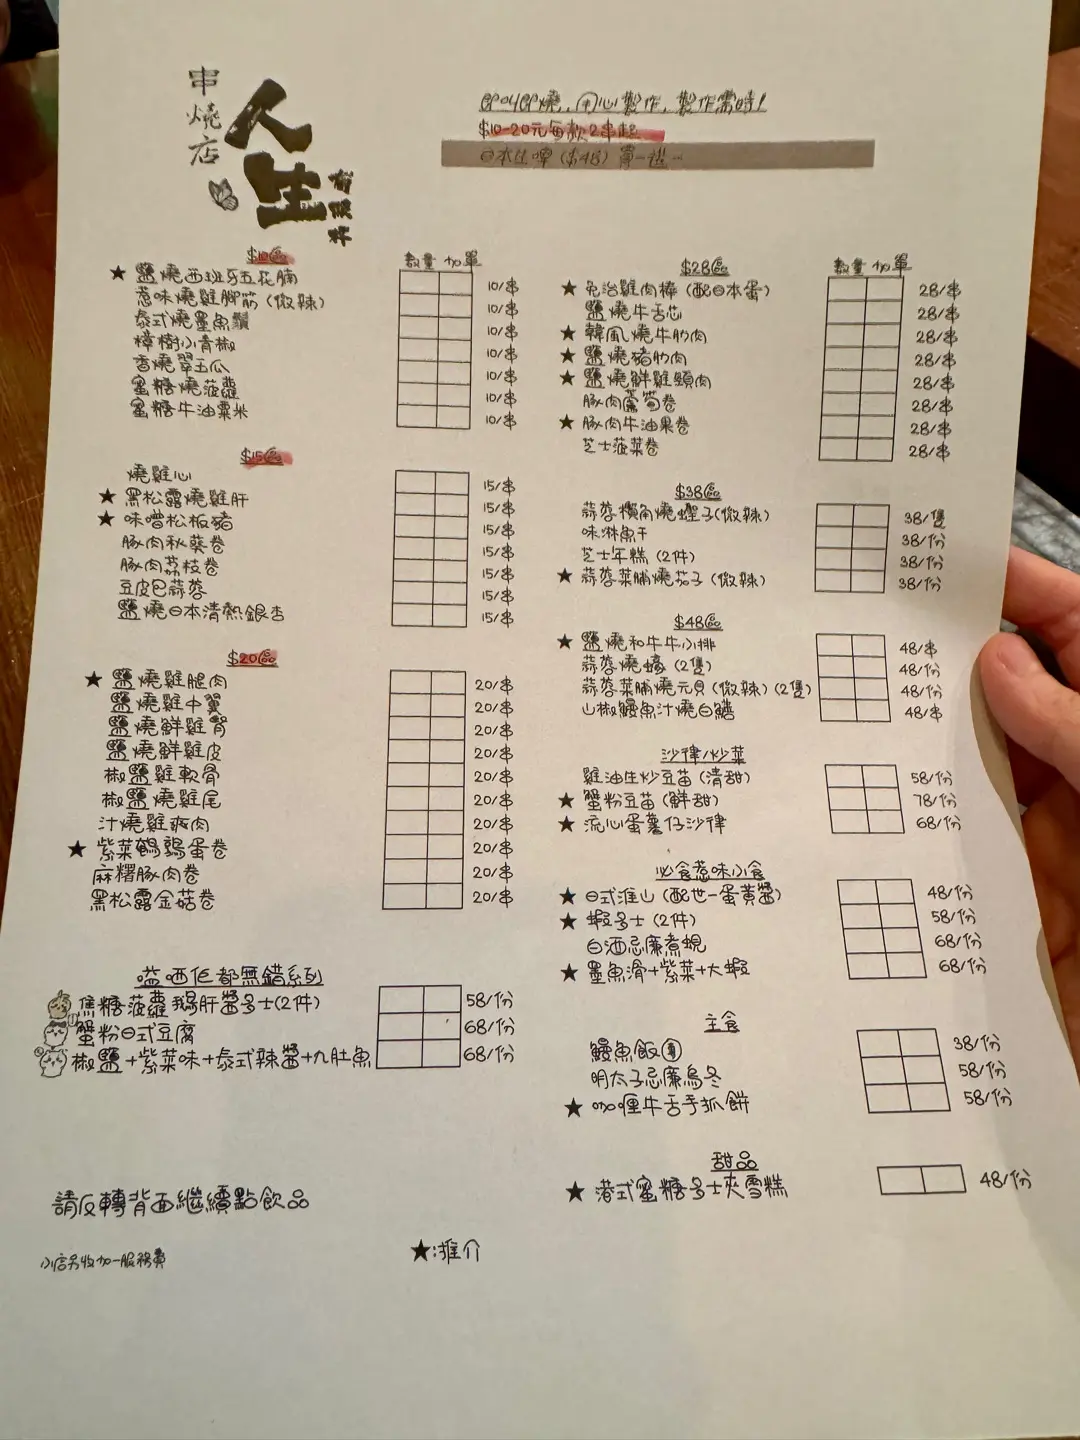 串燒店
人生
有幾杯
即叫即燒，用心製作，製作需時！
$10-20元每款2串起
日本生啤（$48）買一送一
$10區
數量 加單
★ 鹽燒西班牙五花腩 10/串
惹味燒雞腳筋（微辣） 10/串
泰式燒墨魚鬚 10/串
樟樹小青椒 10/串
香燒翠玉瓜 10/串
蜜糖燒菠蘿 10/串
蜜糖牛油粟米 10/串
$15區
燒雞心 15/串
★ 黑松露燒雞肝 15/串
★ 味噌松板豬 15/串
豚肉秋葵卷 15/串
豚肉荔枝卷 15/串
豆皮包蒜蓉 15/串
鹽燒日本清熱銀杏 15/串
$20區
★ 鹽燒雞腿肉 20/串
鹽燒雞中翼 20/串
鹽燒鮮雞腎 20/串
鹽燒鮮雞皮 20/串
椒鹽雞軟骨 20/串
椒鹽燒雞尾 20/串
汁燒雞爽肉 20/串
★ 紫菜鵪鶉蛋卷 20/串
麻糬豚肉卷 20/串
黑松露金菇卷 20/串
嗌哂佢都無錯系列
焦糖菠蘿鵝肝醬多士（2件） 58/份
蟹粉日式豆腐 68/份
椒鹽+紫菜味+泰式辣醬+九肚魚 68/份
請反轉背面繼續點飲品
小店另收加一服務費
★:推介
$28區
數量 加單
★ 免治雞肉棒（配日本蛋） 28/串
鹽燒牛舌芯 28/串
★ 韓風燒牛肋肉 28/串
★ 鹽燒豬肋肉 28/串
★ 鹽燒鮮雞頸肉 28/串
豚肉蘆筍卷 28/串
★ 豚肉牛油果卷 28/串
芝士菠菜卷 28/串
$38區
蒜蓉欖角燒蟶子（微辣） 38/隻
味淋魚干 38/份
芝士年糕（2件） 38/份
★ 蒜蓉菜脯燒茄子（微辣） 38/份
$48區
★ 鹽燒和牛牛小排 48/串
蒜蓉燒蠔（2隻） 48/份
蒜蓉菜脯燒元貝（微辣）（2隻） 48/份
山椒鰻魚汁燒白鱔 48/串
沙律/炒菜
雞油生炒豆苗（清甜） 58/份
★ 蟹粉豆苗（鮮甜） 78/份
★ 流心蛋薯仔沙律 68/份
必食惹味小食
★ 日式淮山（配世一蛋黃醬） 48/份
★ 蝦多士（2件） 58/份
白酒忌廉煮蜆 68/份
★ 墨魚滑+紫菜+大蝦 68/份
主食
鰻魚飯團 38/份
明太子忌廉烏冬 58/份
★ 咖喱牛舌手抓餅 58/份
甜品
★ 港式蜜糖多士夾雪糕 48/份